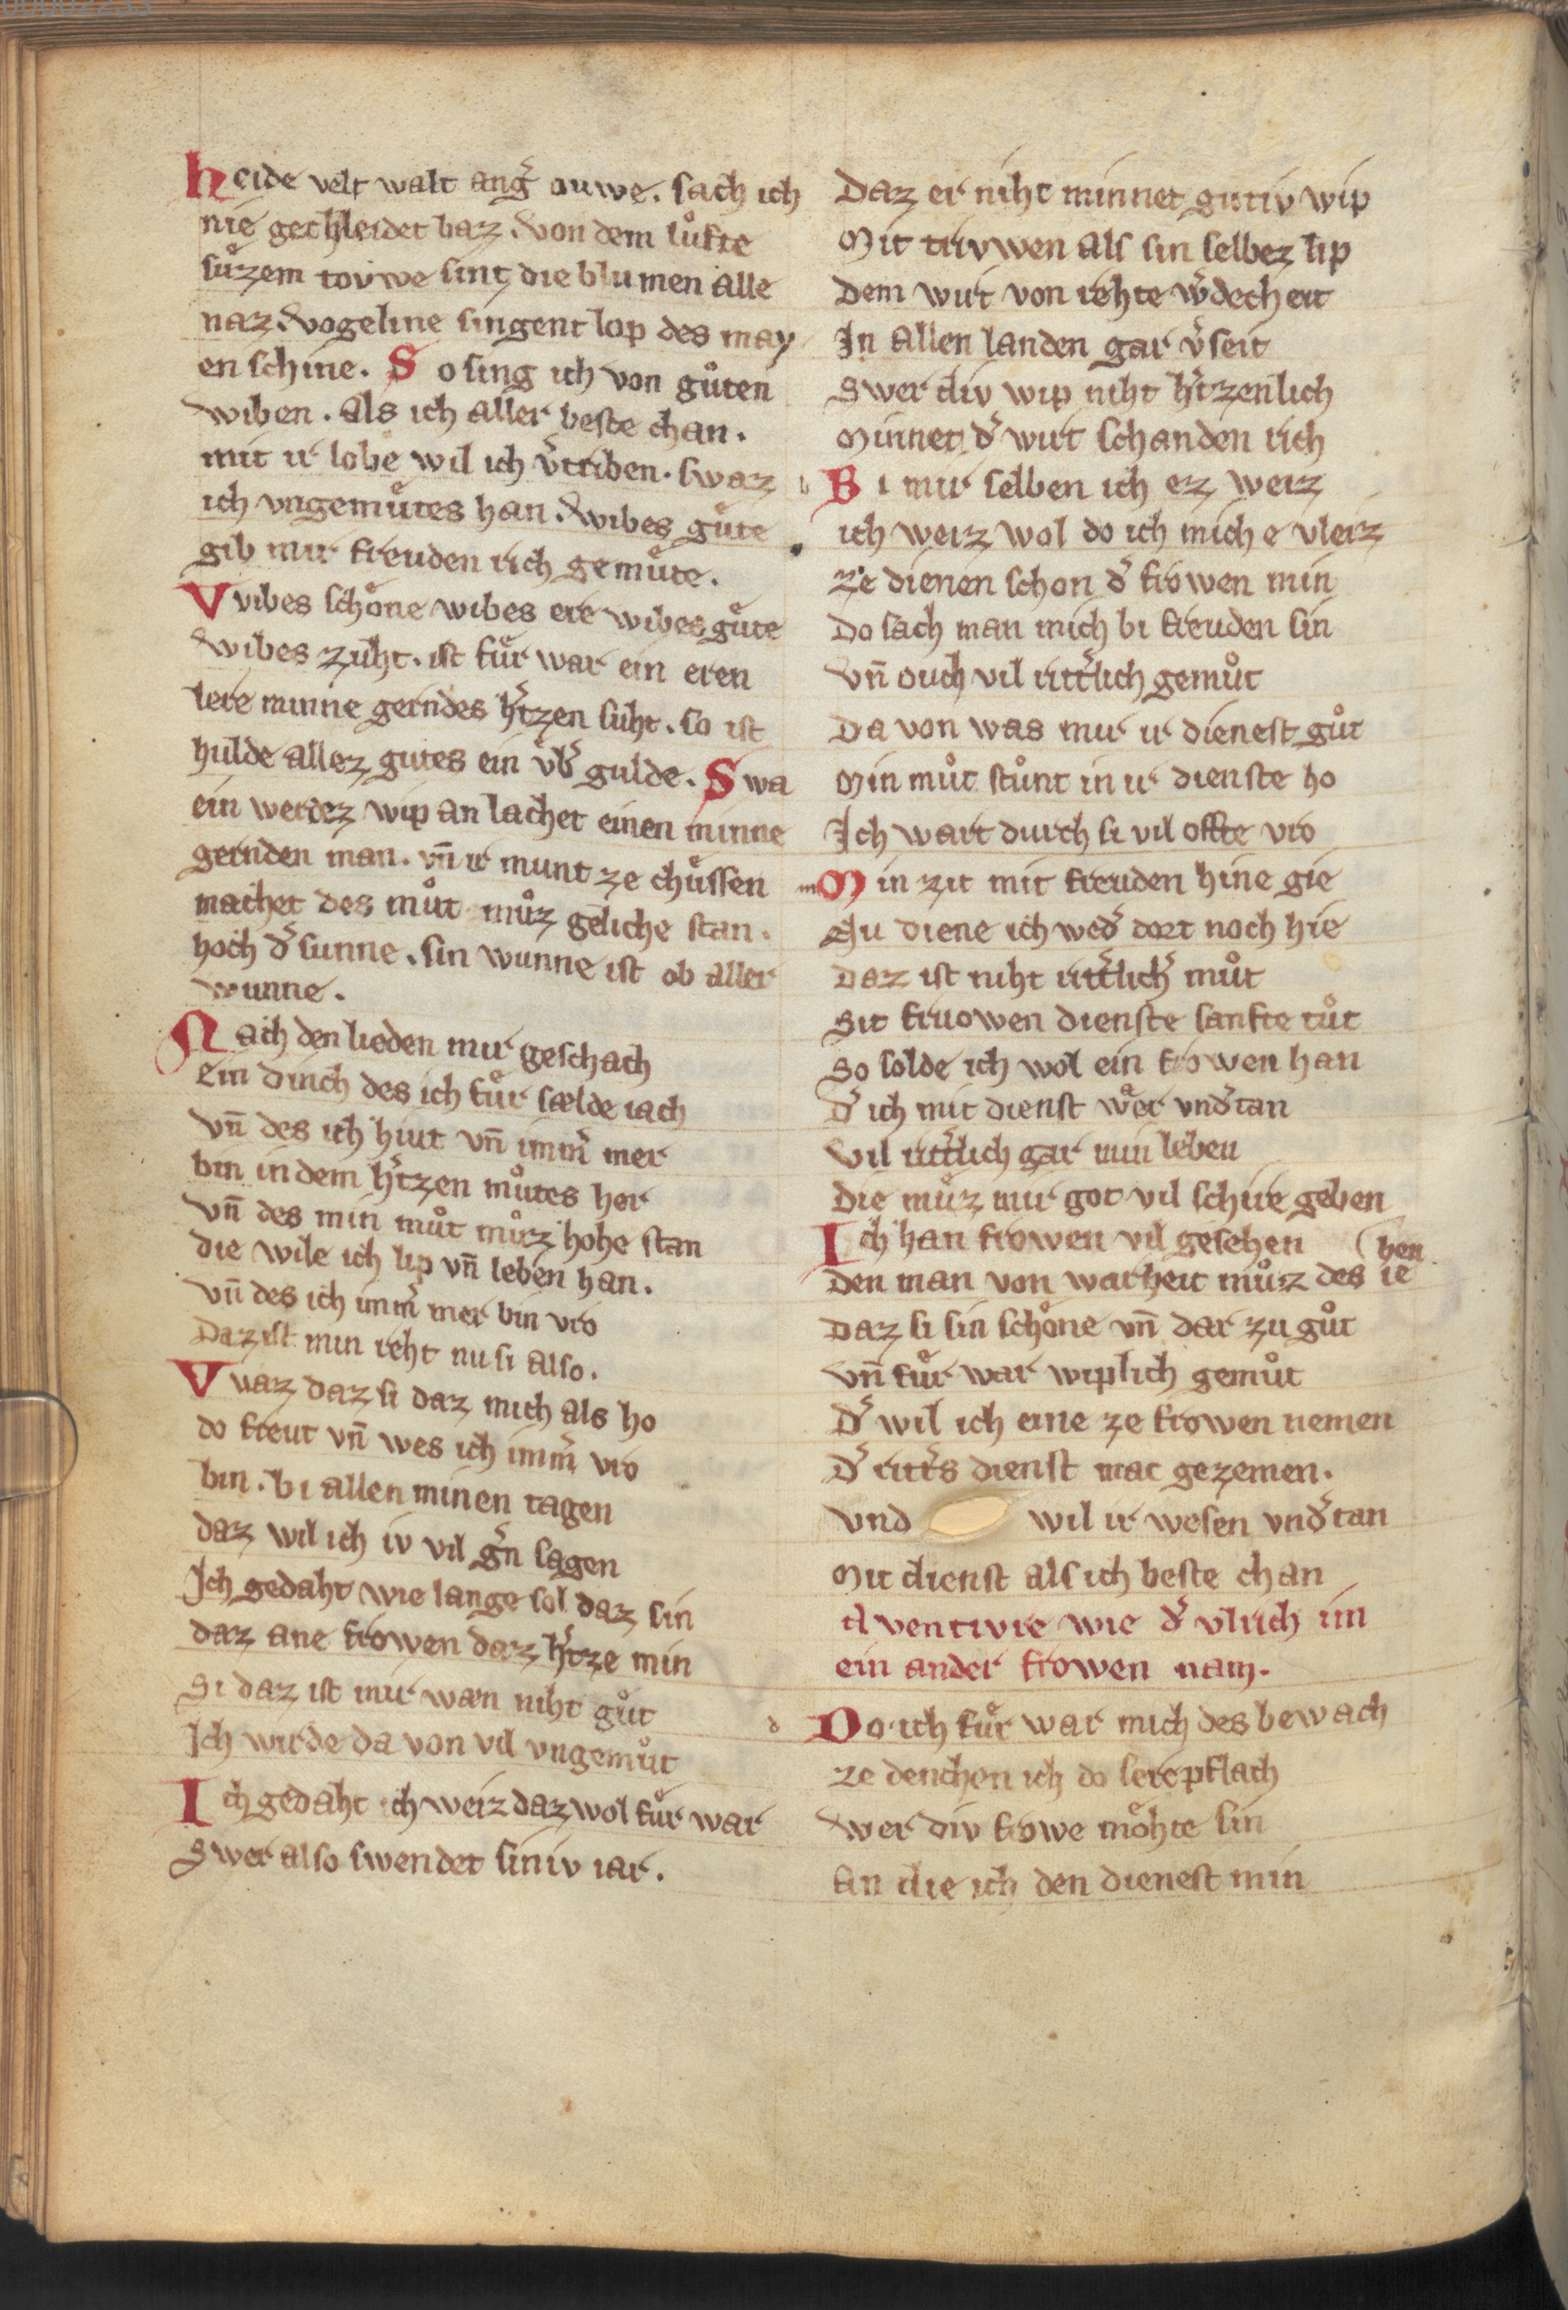 heide velt walt ang̾ ouwe. sach ich
nie gechleidet baz. von dem luͦfte
suͤzem touwe sint die blumen alle
naz. vogeline singent lop des may
en schine. So sing ich von guͦten
wiben. als ich aller beste chan.
mit ir lobe wil ich v̾triben. swaz
ich vngemuͤtes han. wibes guͤte
gib mir freuden rich gemuͤte.
Vvibes schoͤne wibes ere wibes guͤte
wibes zuht. ist fuͤr war ein eren
lere minne gerndes h̾tzen suht. so ist
hulde allez gutes ein vb̾ gulde. Swa
ein werdez wip an lachet einen minne
gernden man. vn̄ ir munt ze chuͤssen
machet des muͦt muͦz geliche stan.
hoch d̾ sunne. sin wunne ist ob aller
wunne.
Nach den lieden mir geschach
ein dinch des ich fuͤr sælde iach
vn̄ des ich hiut vn̄ imm̾ mer
bin in dem h̾tzen muͦtes her
vn̄ des min muͦt muͦz hohe stan
die wile ich lip vn̄ leben han.
vn̄ des ich imm̾ mer bin vro
Daz ist min reht nu si also.
Vvaz daz si daz mich als ho
do freut vn̄ wes ich imm̾ vro
bin. bi allen minen tagen
daz wil ich iv vil g̾n sagen
Ich gedaht wie lange sol daz sin
daz ane frowen daz h̾tze min
Si daz ist mir wæn niht guͦt
Ich wirde da von vil vngemuͦt
Ich gedaht ich weiz daz wol fuͤr war
Swer also swendet siniv iar.
Daz er niht minnet gutiv wip
Mit triwen als sin selbez lip
Dem wirt von rehte w̾decheit
In allen landen gar v̾seit
Swer div wip niht h̾tzenlich
Minnet d̾ wirt schanden rich
Bi mir selben ich ez weiz
ich weiz wol do ich mich e vleiz
ze dienen schon d̾ frowen min
Do sach man mich bi freuden sin
vn̄ ouch vil ritt̾lich gemuͦt
Da von was mir ir dienest guͦt
Min muͦt stuͦnt in ir dienste ho
Ich wart durch si vil offte vro
Min zit mit freuden hine gie
Nu diene ich wed̾ dort noch hie
Daz ist niht ritt̾lich̾ muͦt
Sit fruowen dienste sanfte tuͦt
So solde ich wol ein frowen han
d̾ ich mit dienst wær vnd̾tan
vil ritt̾lich gar min leben
die muͤz mir got vil schire geben
Ich han frowen vil gesehen (hen
den man von warheit muͦz des ie
Daz si sin schoͤne vn̄ dar zu guͦt
vn̄ fuͤr war wiplich gemuͦt
D̾ wil ich eine ze frowen nemen
D̾ ritt̾s dienst mac gezemen.
vnd wil ir wesen vnd̾tan
Mit dienst als ich beste chan
Aventivre wie d̾ vlrich im
ein ander frowen nam.
Do ich fuͤr war mich des bewach
ze denchen ich do sere pflach
wer div frowe moͤhte sin
An die ich den dienest min